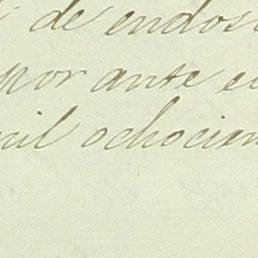 de endos
por ante e
mil ochocien